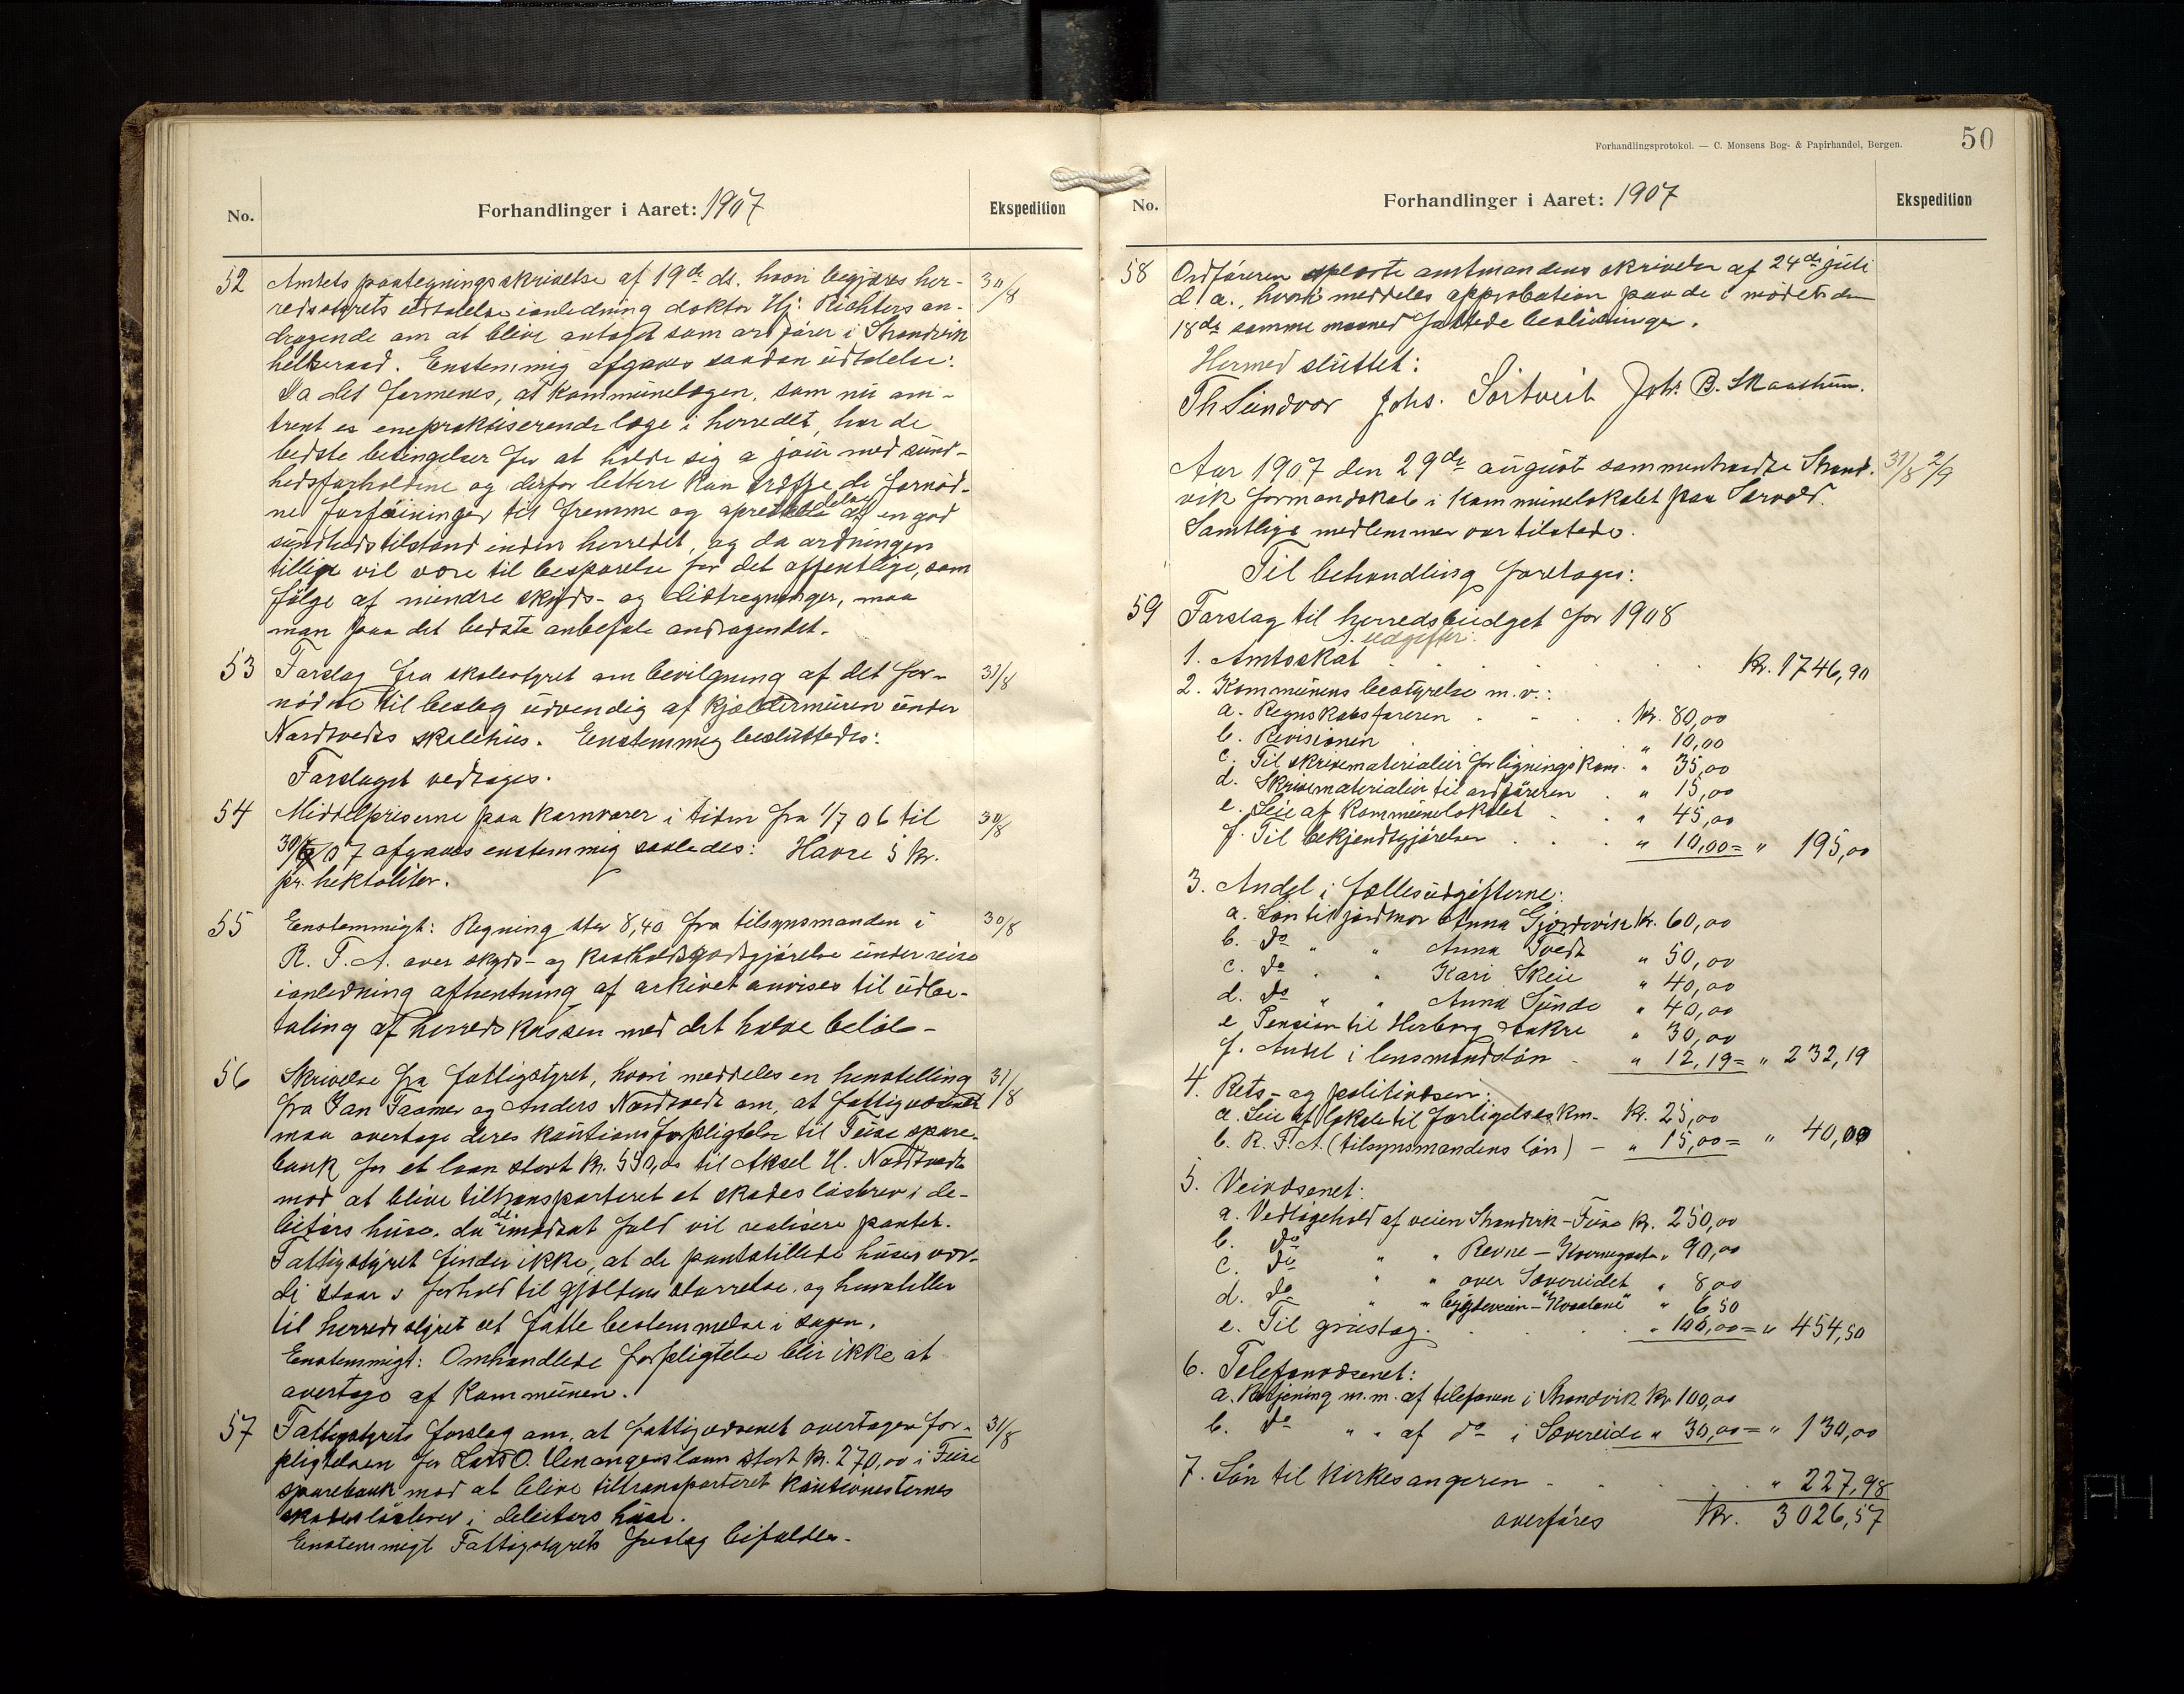 No.
Forhandlinger i Aaret: 1907
Ekspedition
52 Amtets paategningsskrivelse af 19de ds. hvori begjæres her- 30/8
redsstyrets udtalelse ianledning doktor Hj. Richters an-
dragende om at blive antaget som ordfører i Strandvik
helseraad. Enstemmig afgaves saadan udtalelse:
Da det formenes, at kommunelægen, som nu om-
trent er enepraktiserende læge i herredet, har de
bedste betingelser for at holde sig a jour med sund-
hedsforholdene og derfor lettere kan træffe de fornød-
ne forføininger til fremme og af en god
sundhedstilstand inden herredet, og da ordningen
tillige vil være til besparelse for det offentlige, som
følge af mindre skyds- og diætregninger, maa
man paa det bedste anbefale andragendet.
53 Forslag fra skolestyret om bevilgning af det for- 31/8
nødne til beslag udvendig af kjældermuren under
Nordtvedts skolehus. Enstemmig besluttedes:
Forslaget vedtages.
54 Middelpriserne paa kornvarer i tiden fra 1/7 06 til 30/8
30/6 07 afgaves enstemmig saaledes: Havre 5 kr.
pr. hektoliter.
55 Enstemmigt: Regning stor 8,40 fra tilsynsmanden i 30/8
R. T. A. over skyds- og kostholdsgodtgjørelse under reise
ianledning afhentning af arkivet anvises til udbe-
taling af herredskassen med det halve beløb-
56 Skrivelse fra fattigstyret, hvori meddeles en henstilling 31/8
fra Jan Taamer og Anders Nordtvedt om, at fattigvæsenet
maa overtage deres kautionsforpligtelse til Fuse spare-
bank for et laan stort kr. 550,00 til Aksel H. Nordtvedt
mod at blive tiltransporteret et skadesløsbrev i de-
bitors huse, da de imodsat fald vil realisere pantet.
Fattigstyret finder ikke, at de pantstillede huses vær-
di staar i forhold til gjældens størrelse, og henstiller
til herredsstyret at fatte bestemmelse i sagen.
Enstemmigt: Omhandlede forpligtelse blir ikke at
overtage af kommunen.
57 Fattigstyrets forslag om, at fattigvæsenet overtager for- 31/8
pligtelsen for Lars O. Henanger laan stort kr. 270,00 i Fuse
sparebank mod at blive tiltransporteret kautionisternes
skadesløsbrev i debitors huse.
Enstemmigt Fattigstyrets forslag bifaldes.
Forhandlingsprotokol. — C. Monsens Bog- & Papirhandel, Bergen.
50
No.
Forhandlinger i Aaret: 1907
Ekspedition
58 Ordføreren oplæste amtmandens skrivelse af 24de juli
d. a., hvori meddeles approbation paa de i mødet den
18de samme maaned fattede beslutninger.
Hermed sluttet:
Th Sundvor Johs. Sørtveit Johs. B. Skaathun.
Aar 1907 den 29de august sammentraadte Strand- 31/8 2/9
vik formandskab i kommunelokalet paa Sævold.
Samtlige medlemmer var tilstede.
Til behandling foretoges:
59 Forslag til herredsbudget for 1908
A. udgifter:
1. Amtsskat . . . . . Kr. 1746,90
2. Kommunens bestyrelse m. v.:
a. Regnskabsføreren . . . . kr. 80,00
b. Revisionen . . . . " 10,00
c. Til skrivematerialier for ligningskom. " 35,00
d. Skrivematerialier til ordføreren . " 15,00
e. Leie af kommunelokalet . . " 45,00
f. Til bekjendtgjørelser . . . " 10,00 = " 195,00
3. Andel i fællesudgifterne:
a. Løn til jordmor Anna Gjordvik kr. 60,00
b. do " " Anna Tvedt " 50,00
c. do " " Kari Skeie " 40,00
d. do " " Anna Sunde " 40,00
e. Pension til Herborg Aakre " 30,00
f. Andel i lensmandsløn - " 12,19 = " 232,19
4. Rets- og politivæsen:
a. Leie af lokale til forligelseskm. kr. 25,00
b. R. T. A. (tilsynsmandens løn) — " 15,00 = " 40,00
5. Veivæsenet:
a. Vedligehold af veien Strandvik - Fuse kr. 250,00
b. do " " Revne — " 90,00
c. do " " over Sævereidet " 8,00
d. do " " bygdeveien - " 6,50
e. Til grustag . . . . " 100,00 = " 454,50
6. Telefonvæsenet:
a. Betjening m. m. af telefonen i Strandvik kr. 100,00
b. do " " af do i Sævereide " 30,00 = " 130,00
7. Løn til kirkesangeren . . . . " 227,98
overføres Kr. 3026,57